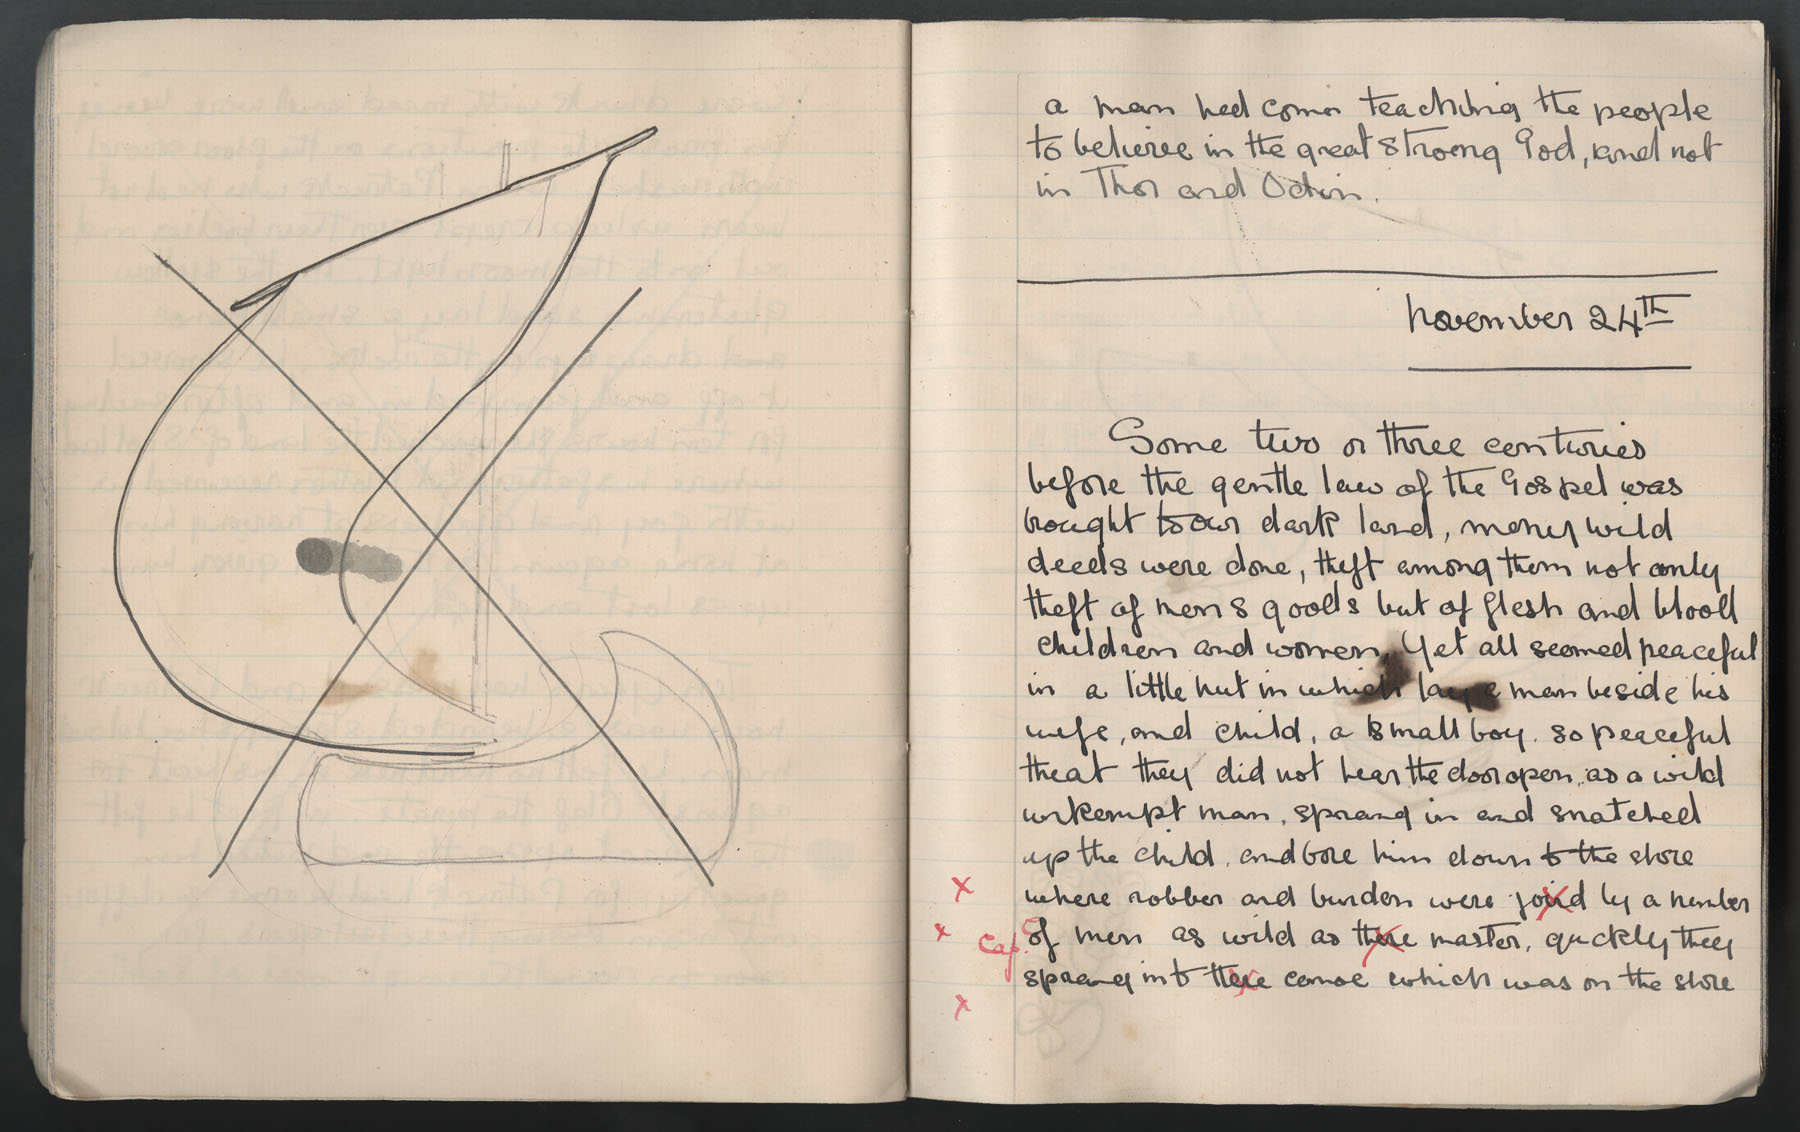 a man had come teaching the people
to believe in the great stroeng God, and not
in Thor and Odin.
November 24th
Some two or three centuries
before the gentle law of the Gospel was
brought to our dark land, many wild
deeds were done, theft among them not only
theft of mens goods but of flesh and blood
children and women, Yet all seemed peaceful
in a little hut in which lay a man beside his
wife, and child, a small boy. so peaceful
that they did not hear the door open, as a wild
unkempt man, sprang in and snatched
up the child, and bore him down to the shore
X where robber and burden were joind by a number
X Cap. of men as wild as there master, quickly they
X sprang into there canoe which was on the shore